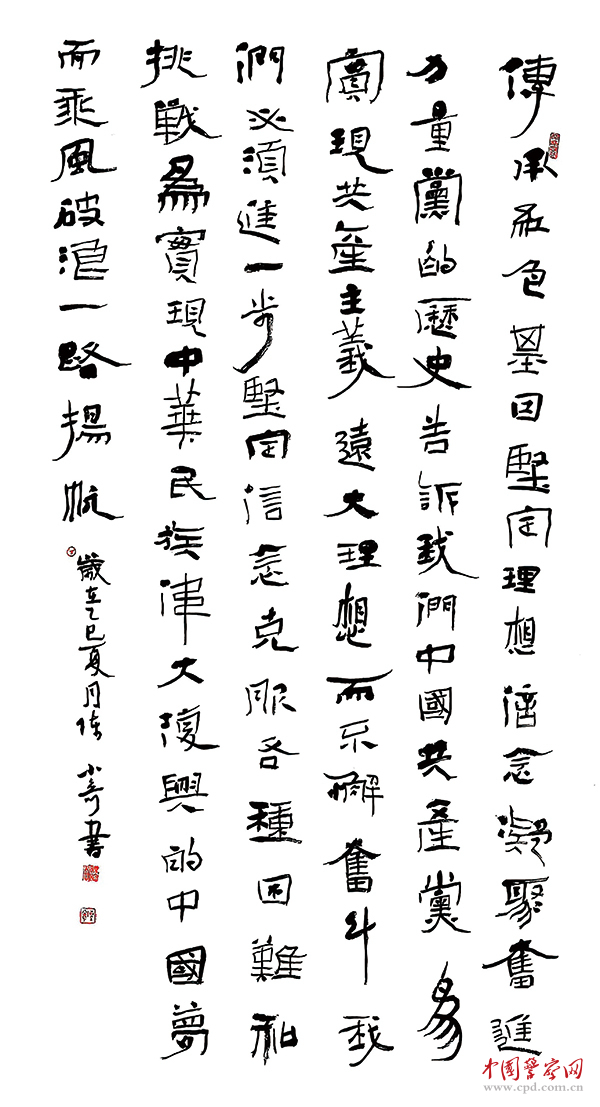 傳承紅色基因堅定理想信念凝聚奮進
力量黨的歷史告訴我們中國共產黨為
實現共產主義遠大理想而不懈奮斗我
們必須進一步堅定信念克服各種困難和
挑戰為實現中華民族偉大復興的中國夢
而乘風破浪一路揚帆
歲在乙巳夏月 小奇書
中国警察网
www.cpd.com.cn